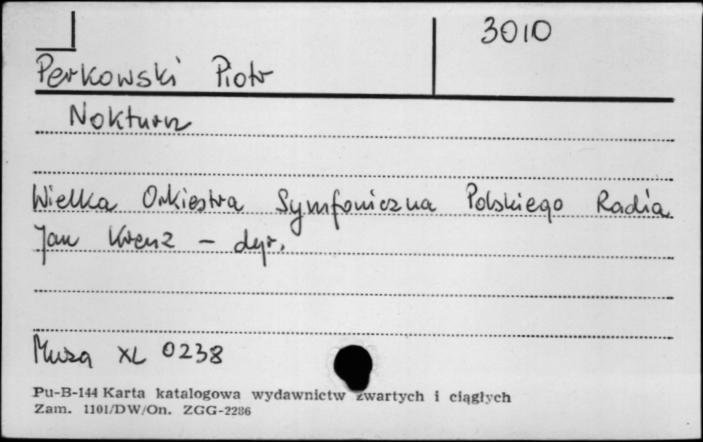 3010
Perkowski Piotr
Nokturn
Wielka Orkiestra Symfoniczna Polskiego Radia
Jan Krenz - dyr.
Muza XL 0238
Pu-B-144 Karta katalogowa wydawnictw zwartych i ciągłych
Zam. 1101/DW/On. ZGG-2286